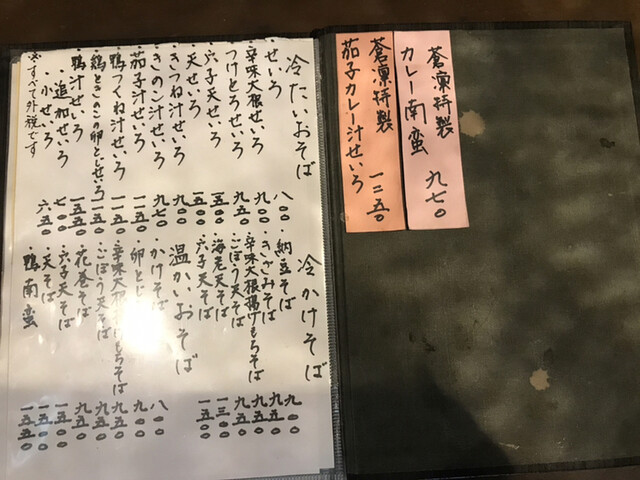 蒼凛特製
カレー南蛮 九七〇
蒼凛特製
茄子カレー汁せいろ 一二五〇
冷たいおそば
・せいろ 八〇〇
・辛味大根せいろ 九〇〇
・つけとろせいろ 九五〇
・天せいろ 一五〇〇
・穴子天せいろ 一五〇〇
・きつね汁せいろ 九〇〇
・きのこ汁せいろ 九七〇
・茄子汁せいろ 一一五〇
・鴨つくね汁せいろ 一一五〇
・鶏ときのこの卵とじせいろ 一一五〇
・鴨汁せいろ 一五五〇
・追加せいろ 七〇〇
・小せいろ 六五〇
※すべて外税です
冷かけそば
・納豆そば 九〇〇
・きざみそば 九五〇
・辛味大根揚げもちそば 九五〇
・ごぼう天そば 九五〇
・海老天そば 一三〇〇
・穴子天そば 一五〇〇
温かいおそば
・かけそば 八〇〇
・卵とじ 九〇〇
・辛味大根揚げもちそば 九五〇
・ごぼう天そば 九五〇
・花巻そば 九五〇
・穴子天そば 一五〇〇
・天そば 一五〇〇
・鴨南蛮 一五五〇